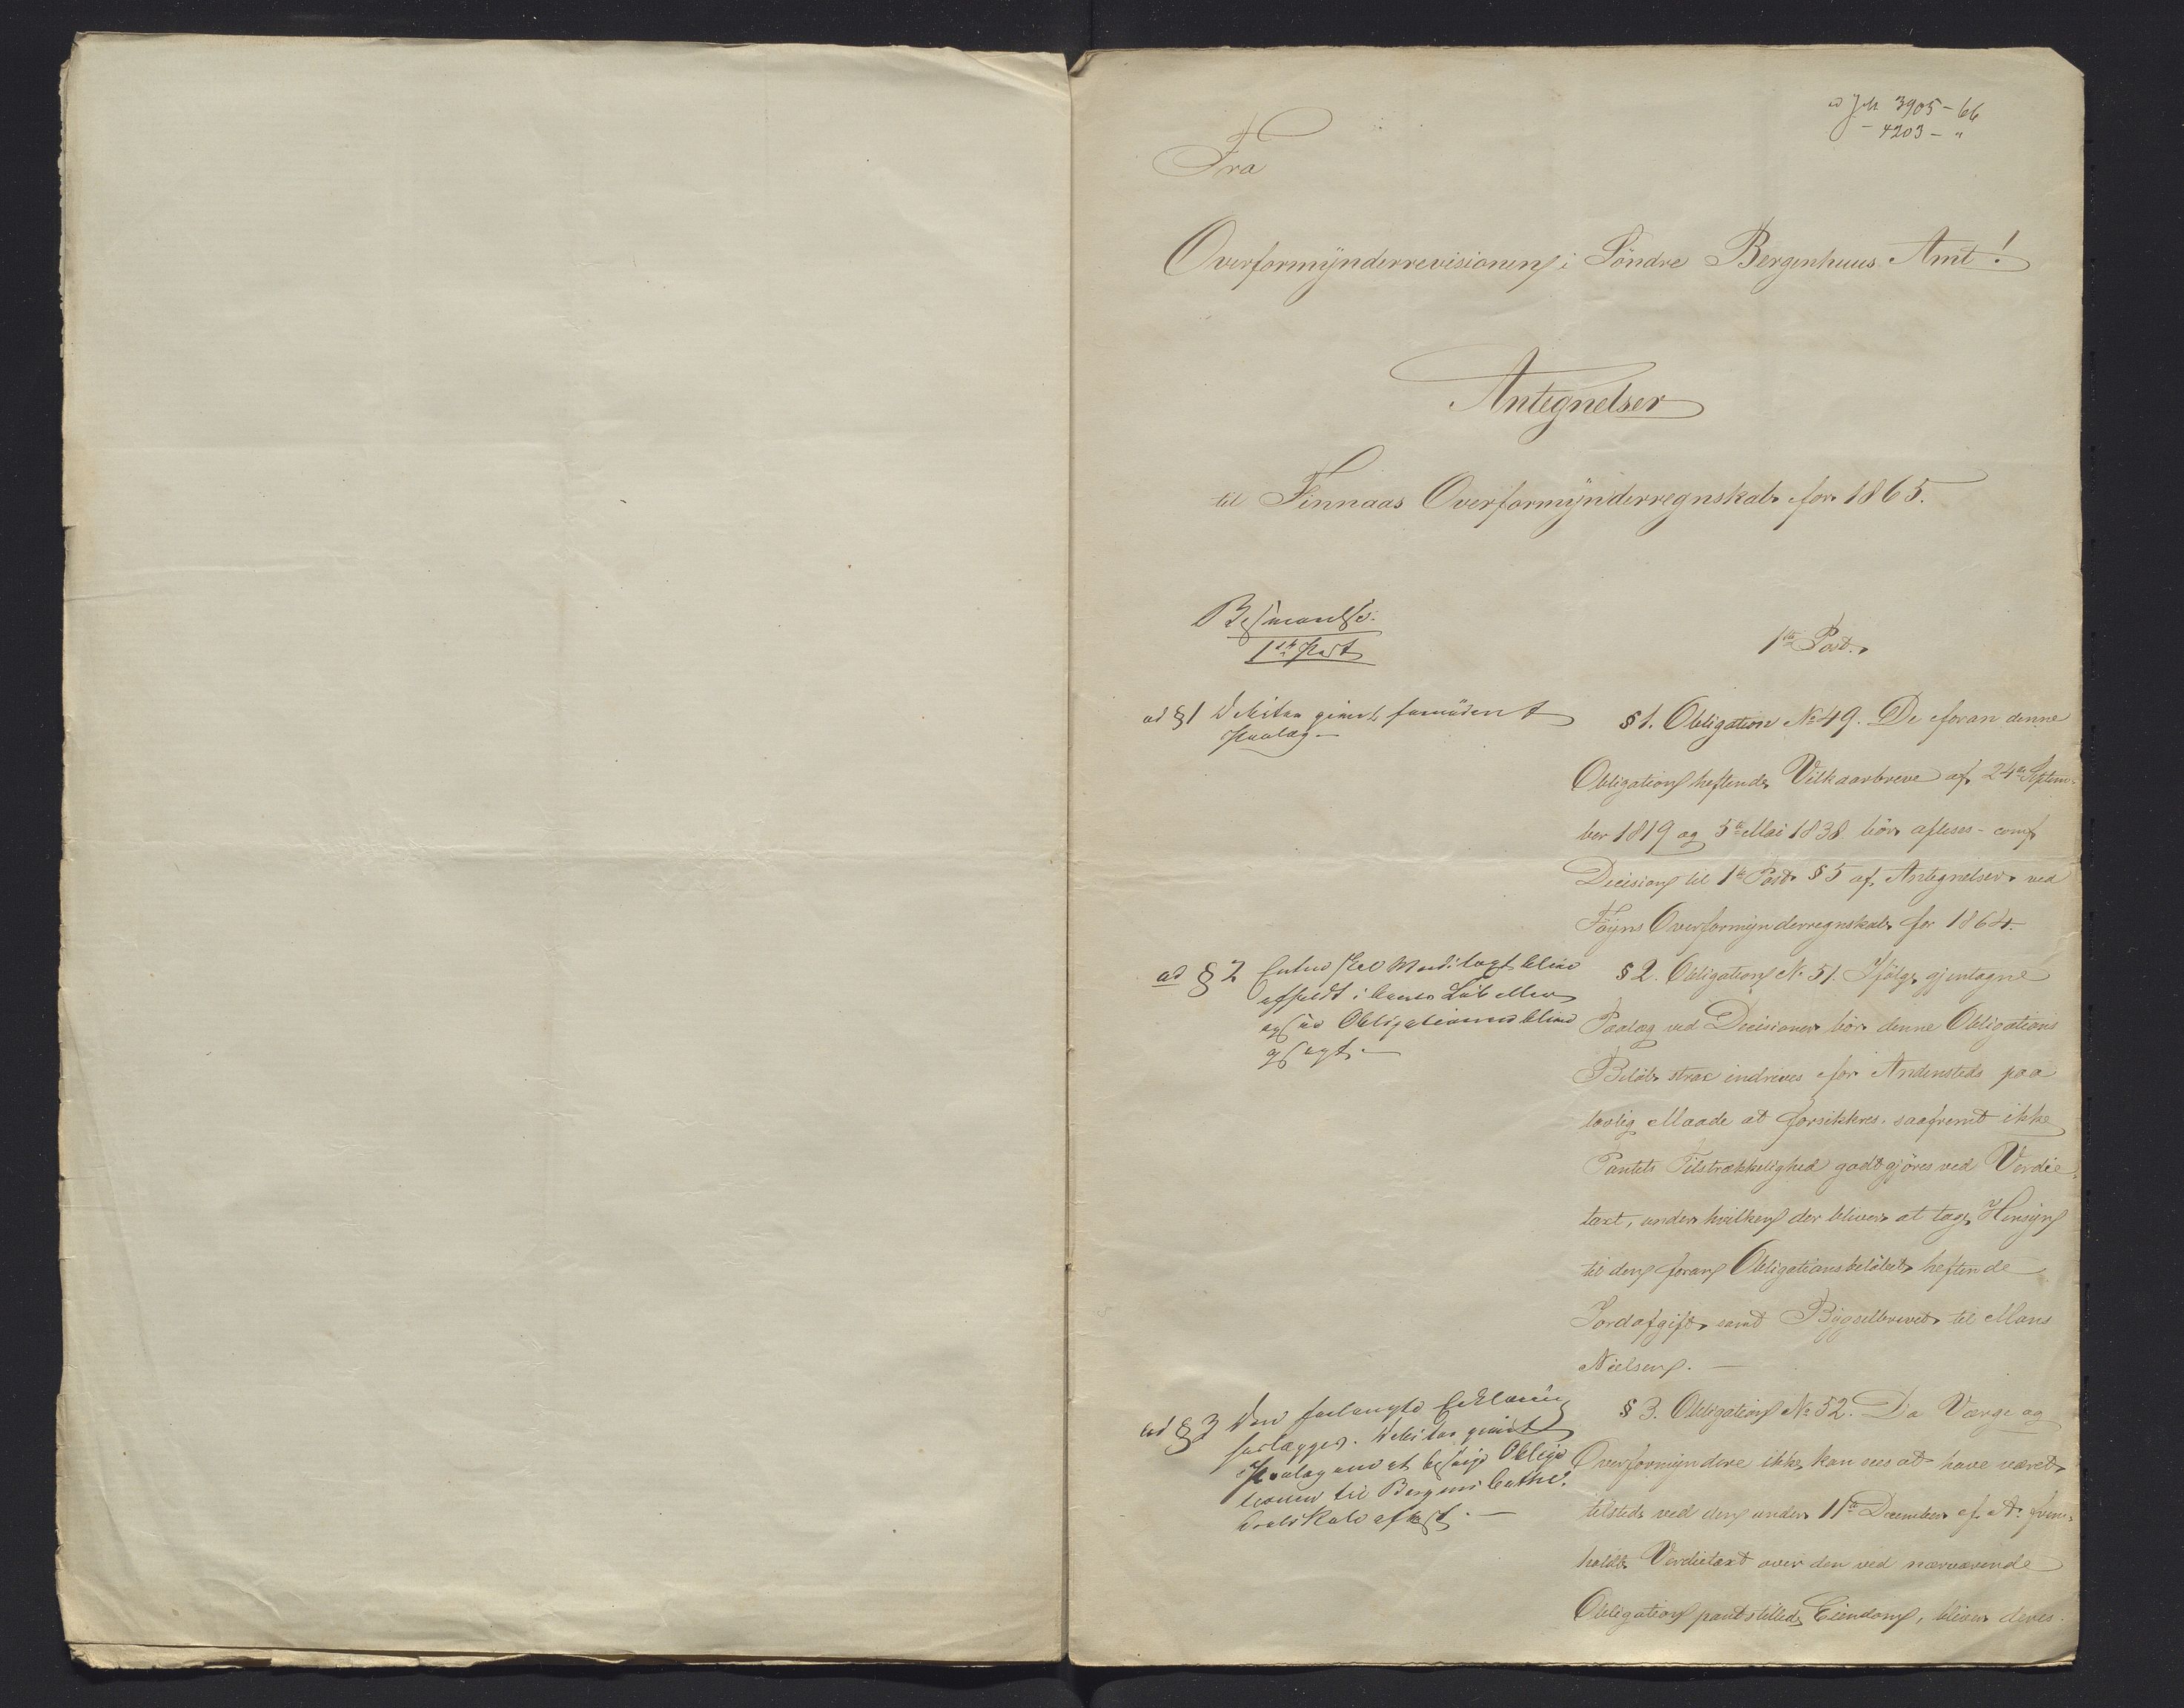 ad J№ 3905-66
- 4203 - "
Fra
Overformÿnderrevisionen i Söndre Bergenhuus Amt!
Antegnelser
til Finnaas Overformÿnderregnskab for 1865.
Besvarelse.
1ste Post
ad §1 Debitor givet fornödent
Paalæg.-
ad § 2 Enten skal Værditaxt blive
afholdt i Løb eller
og saa Obligationen blive
opsagt.-
ad § 3 Den forlangte Erklæring
forlægges. Debitor givet
Paalæg om at besørge Obliga
tionen til Bergens Cathe-
dralskole aflæst.-
1ste Post.
§ 1. Obligation № 49. De foran denne
Obligation heftende Vilkaarbreve af 24de Septem-
ber 1819 og 5te Mai 1838 bör aflæses - conf
Decision til 1ste Post § 5 af Antegnelser ved
Föÿns Overformÿnderregnskab for 1864.
§ 2. Obligation № 51. Ifölge gjentagne
Paalæg ved Decisioner bör denne Obligations
Belöb strax indrives for Andensteds paa
lovlig Maade at forsikkres, saafremt ikke
Pantets Tilstrækkelighed godtgjöres ved Verdie-
taxt, under hvilken der bliver at tage Hensÿn
til den foran Obligationsbelöbet heftende
Jordafgift samt Bÿgselbrevet til Mons
Nielsen. -
§ 3. Obligation № 52. Da Værge og
Overformÿndere ikke kan sees at have været
tilstede ved den under 11te December f. A. frem-
holdte Verdietaxt over den ved nærværende
Obligation pantstillede Eiendom, bliver deres